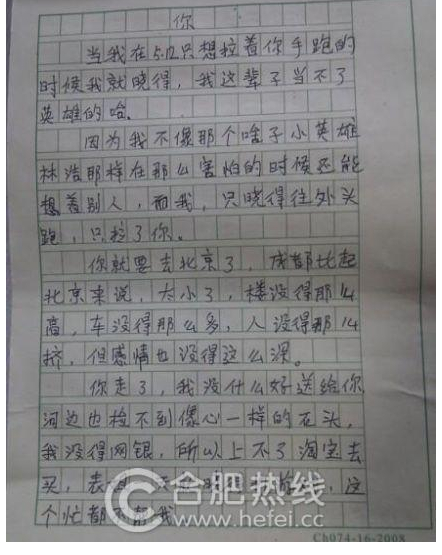 你
当我在5.12只想拉着你手跑的
时候我就晓得，我这辈子当不了
英雄的哈。
因为我不像那个啥子小英雄
林浩那样在那么害怕的时候还能
想着别人，而我，只晓得往外头
跑，只拉了你。
你就要去北京了，成都比起
北京来说，太小了，楼没得那么
高，车没得那么多，人没得那么
挤，但感情也没得这么深。
你走了，我没什么好送给你
河边也捡不到像心一样的石头，
我没得网银，所以上不了淘宝去
买，表
这
个忙都不帮我
合肥热线
www.hefei.cc
Ch074-16-2008